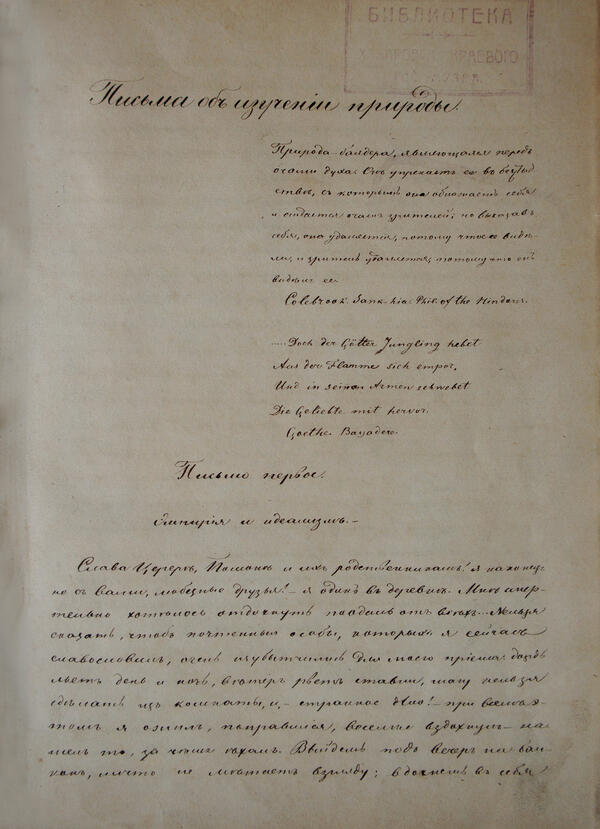 БИБЛИОТЕКА
КРАЕВОГО
Письма объ изученіи природы.
Природа-баядера, являющаяся передъ
очами духа. Онъ упрекаетъ ее въ безстыд
ствѣ, съ которымъ она обнажаетъ себя
и отдается очамъ зрителей; но выказавъ
себя, она удаляется, потому что ее видѣ-
ли, и зритель удаляется, потому что онъ
видѣлъ ее.
Colebrook. Sank-hia. Phil. of the Hindous.
.....Doch der Götter Jüngling hebet
Aus der Flamme sich empor,
Und in seinen Armen schwebet
Die Geliebte mit hervor.
Goethe. Bayadere.
Письмо первое.
Эмпирія и идеализмъ.–
Слава Церерѣ, Помонѣ и ихъ родственникамъ! я наконец
не съ вами, любезные друзья! – я одинъ въ деревнѣ. Мнѣ смер-
тельно хотѣлось отдохнуть поодаль отъ всѣхъ... Нельзя
сказать, чтобъ почтенныя особы, которыхъ я сейчасъ
славословилъ, очень изубытчились для моего пріема: дождь
льетъ день и ночь, вѣтеръ рветъ ставни, шагу нельзя
сдѣлать изъ комнаты, и, – странное дѣло! – при всемъ э-
томъ я ожилъ, поправился, веселѣе вздохнулъ – на-
шелъ то, за чѣмъ ѣхалъ. Выйдешь подъ вечеръ на бал-
конъ, ничто не мѣшаетъ взгляду; вдохнешь въ себя